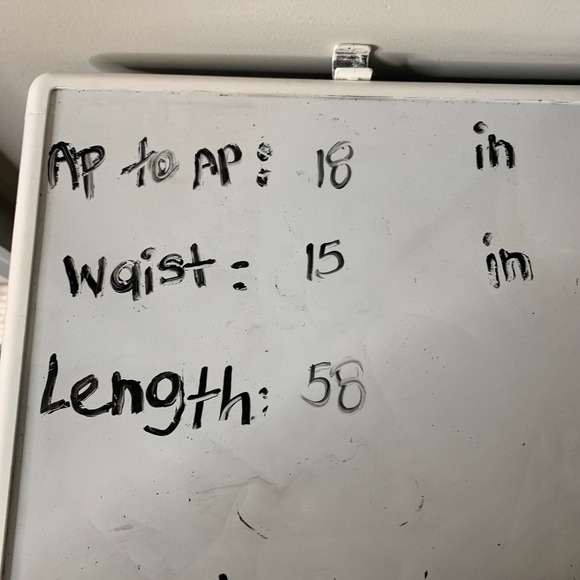 AP to AP: 18 in
Waist: 15 in
Length: 58